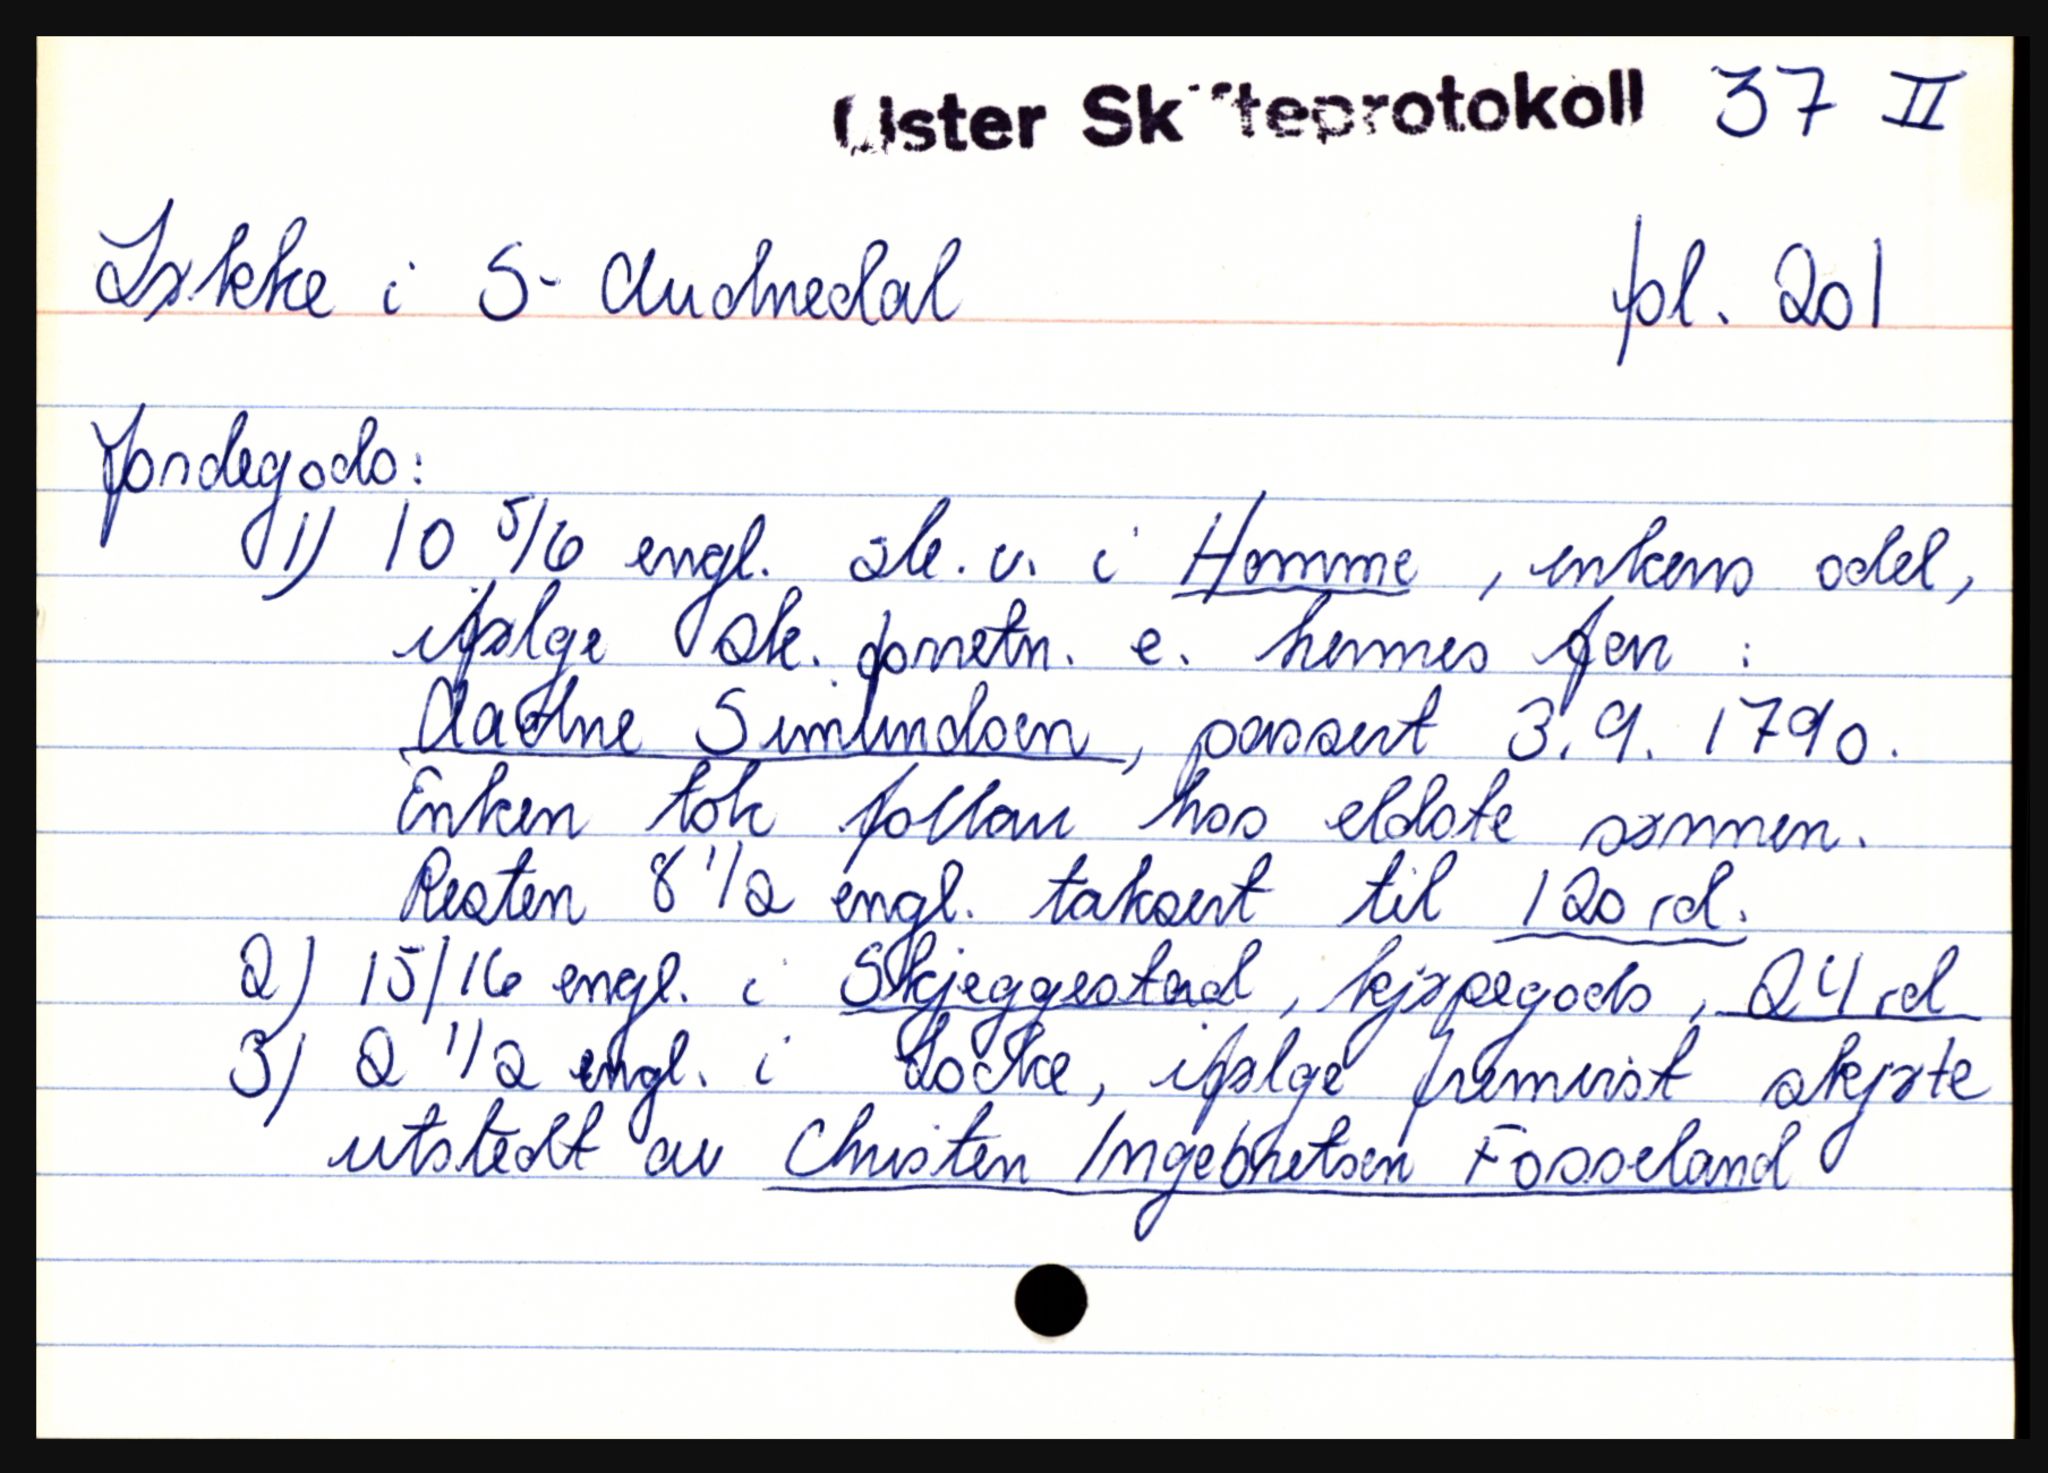 Lister Skifteprotokoll 37 II
Løkke i S-Audnedal fol. 201
Jordegods:
1) 10 5/6 engl. sk. v. i Homme, enkens odel,
ifølge sk. forretn. e. hennes far:
Aadne Simundsen, passert 3.9.1790.
Enken tok follau hos eldste sønnen.
Resten 8 1/2 engl. taksert til 120 rd.
2) 15/16 engl. i Skjeggestad, kjøpegods, 24 rd
3) 2 1/2 engl. i Løcke, ifølge fremvist skjøte
utstedt av Christen Ingebretsen Fosseland